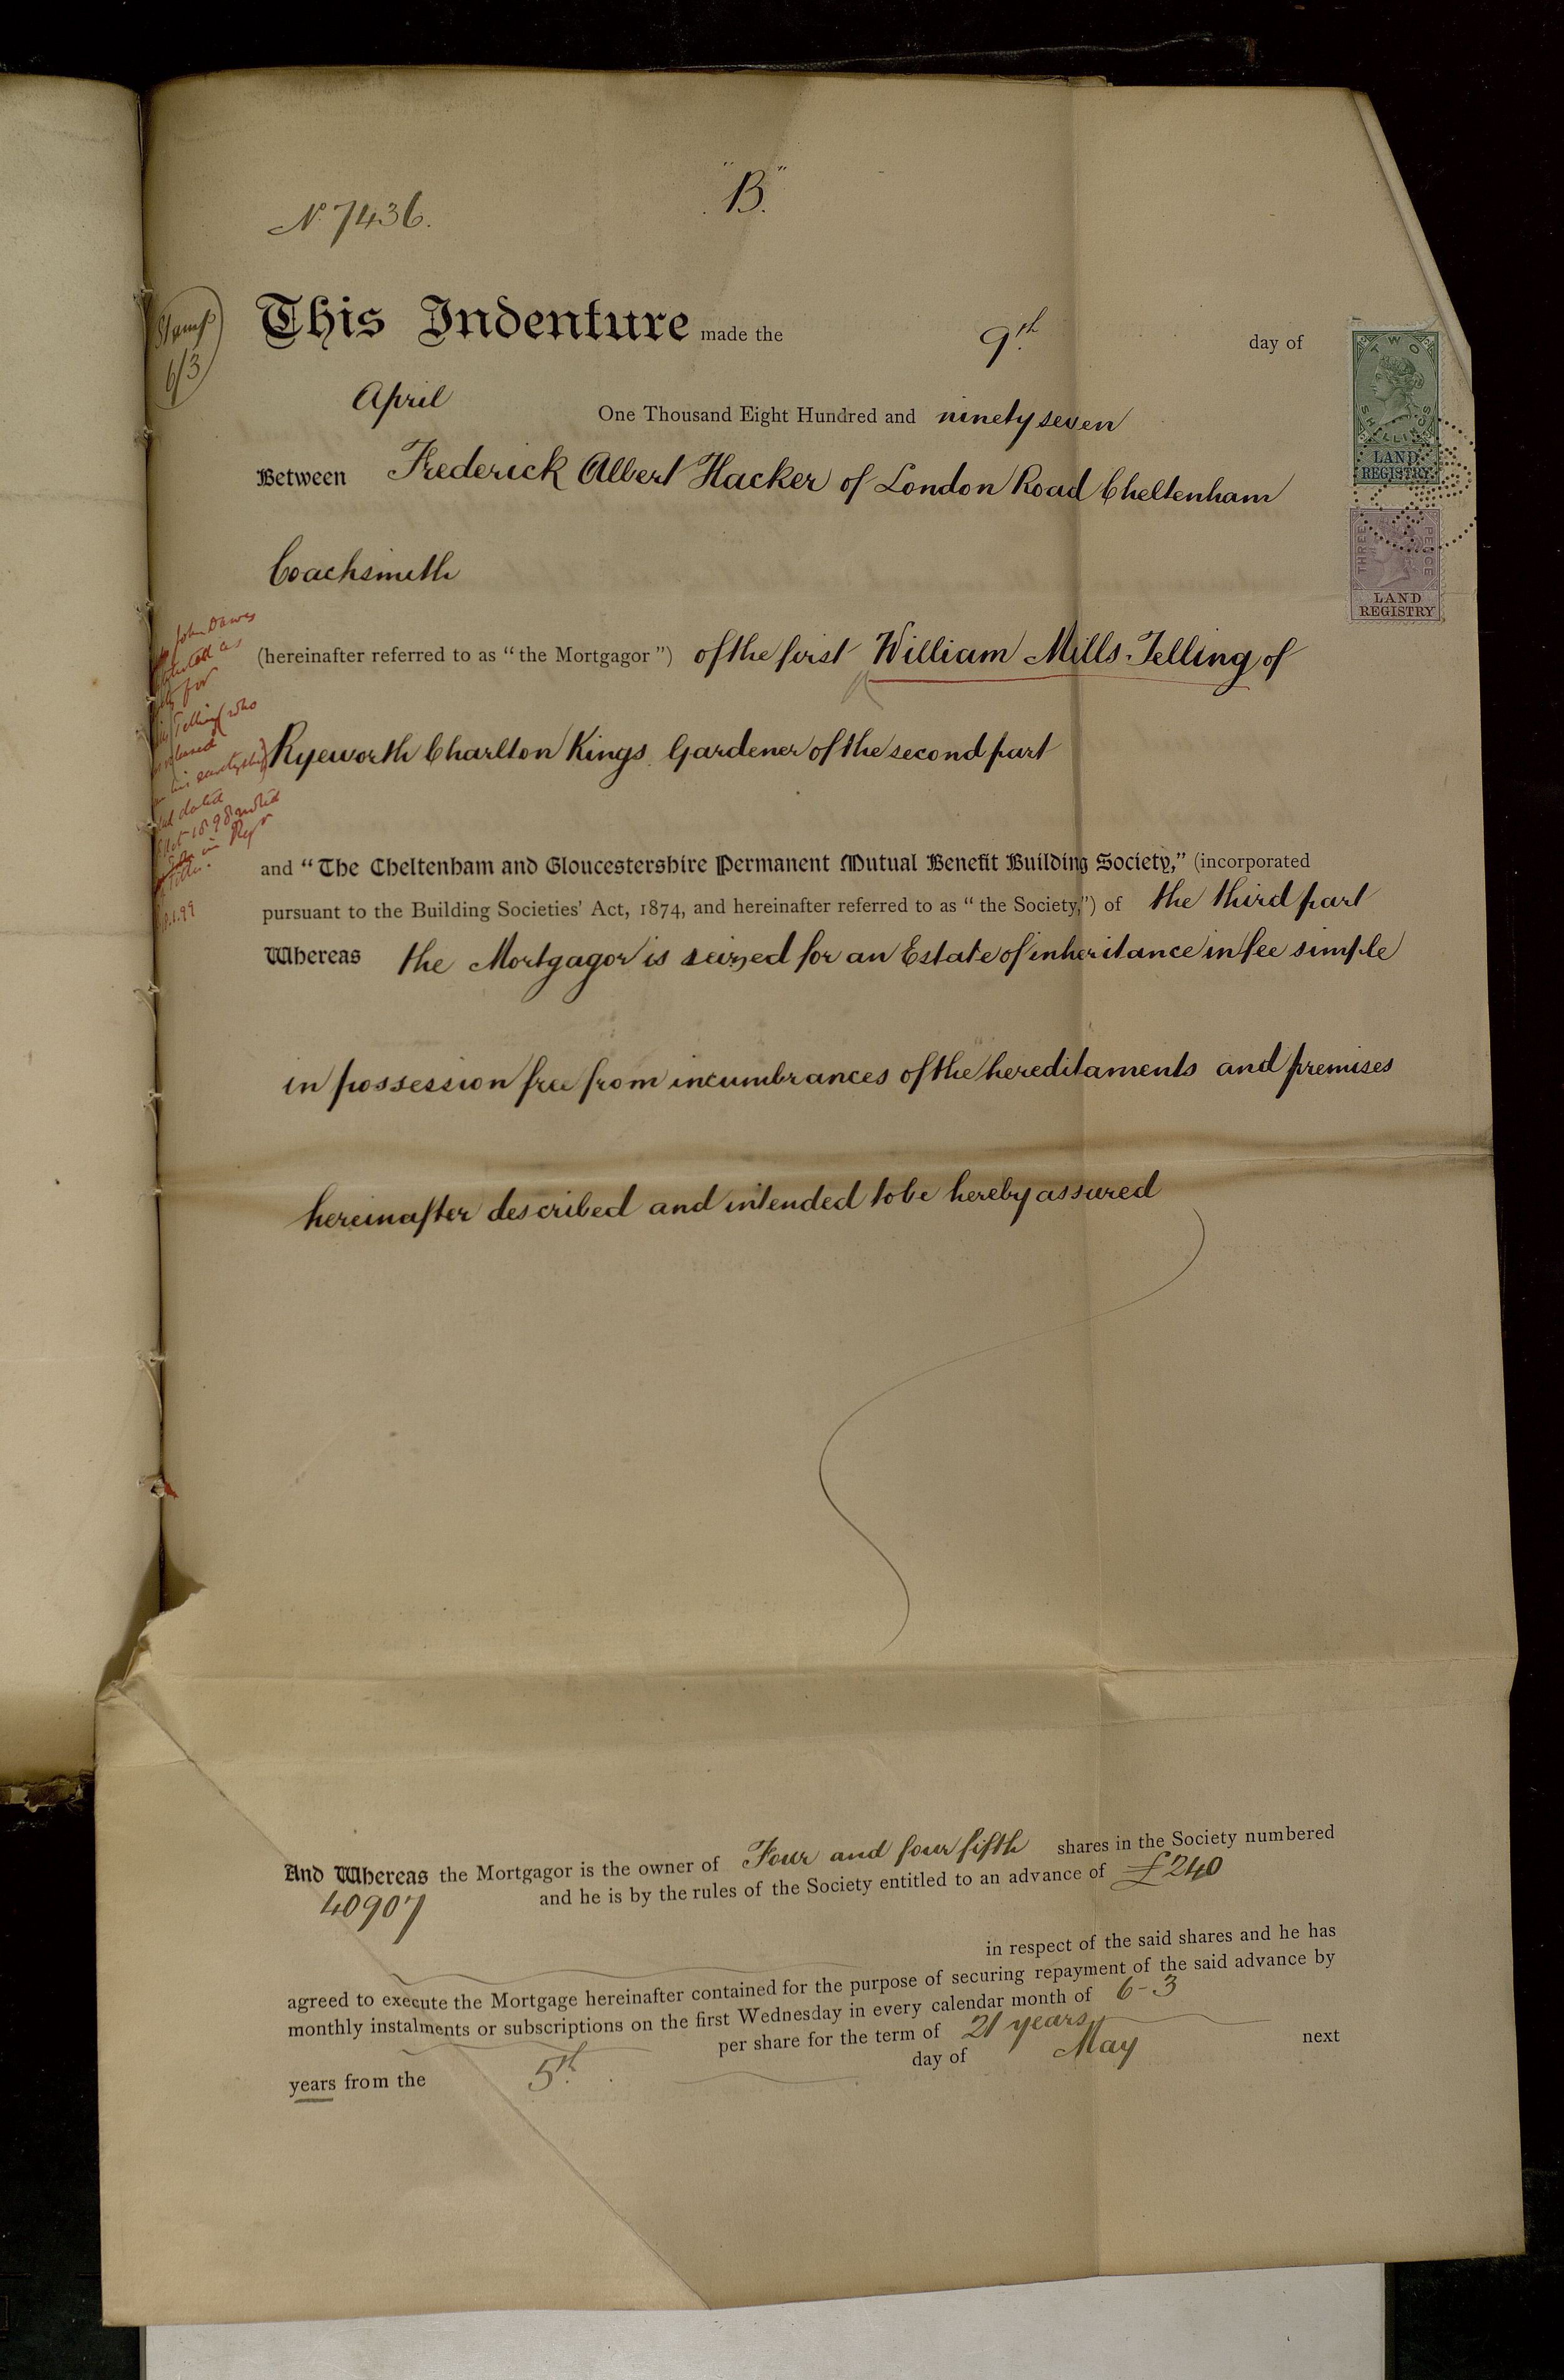 "B."
No. 7436.
Stamp
6/3
This Indenture made the 9th. day of
April One Thousand Eight Hundred and ninety seven
Between Frederick Albert Hacker of London Road Cheltenham
Coachsmith
(hereinafter referred to as "the Mortgagor") of the first William Mills Telling of
Ryeworth Charlton Kings Gardener of the second part
and "The Cheltenham and Gloucestershire Permanent Mutual Benefit Building Society," (incorporated
pursuant to the Building Societies' Act, 1874, and hereinafter referred to as "the Society,") of the third part
Whereas the Mortgagor is seized for an Estate of inheritance in fee simple
in possession free from incumbrances of the hereditaments and premises
hereinafter described and intended to be hereby assured
And Whereas the Mortgagor is the owner of Four and four fifth shares in the Society numbered
40907 and he is by the rules of the Society entitled to an advance of £240
in respect of the said shares and he has
agreed to execute the Mortgage hereinafter contained for the purpose of securing repayment of the said advance by
monthly instalments or subscriptions on the first Wednesday in every calendar month of 6-3
per share for the term of 21 years
years from the 5th. day of May next
John Dawes
as
for
Telling (who
dated
in Regr
1.99
TWO
SHILLINGS
LAND
REGISTRY
THREE PENCE
LAND
REGISTRY